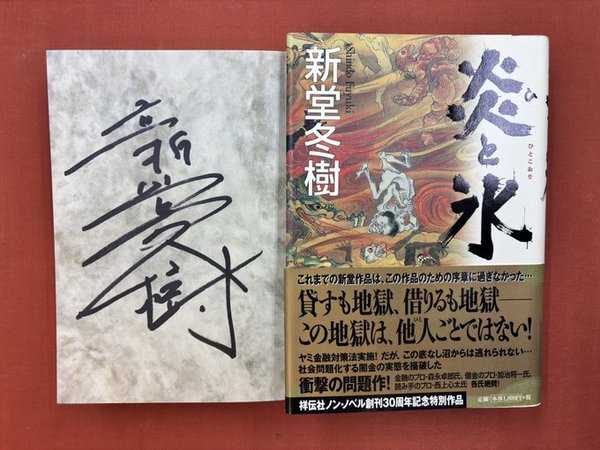 新堂冬樹
Shindo Fuyuki
新堂冬樹
炎と氷
ひ
ひとこおり
これまでの新堂作品は、この作品のための序章に過ぎなかった…
貸すも地獄、借りるも地獄――
この地獄は、他人ごとではない!
ひと
ヤミ金融対策法実施!だが、この底なし沼からは逃れられない…
社会問題化する闇金の実態を描破した
衝撃の問題作!
金融のプロ・森永卓郎氏、借金のプロ・加治将一氏、
読み手のプロ・西上心太氏 各氏絶賛!
祥伝社ノン・ノベル創刊30周年記念特別作品
定価 本体1,800円+税